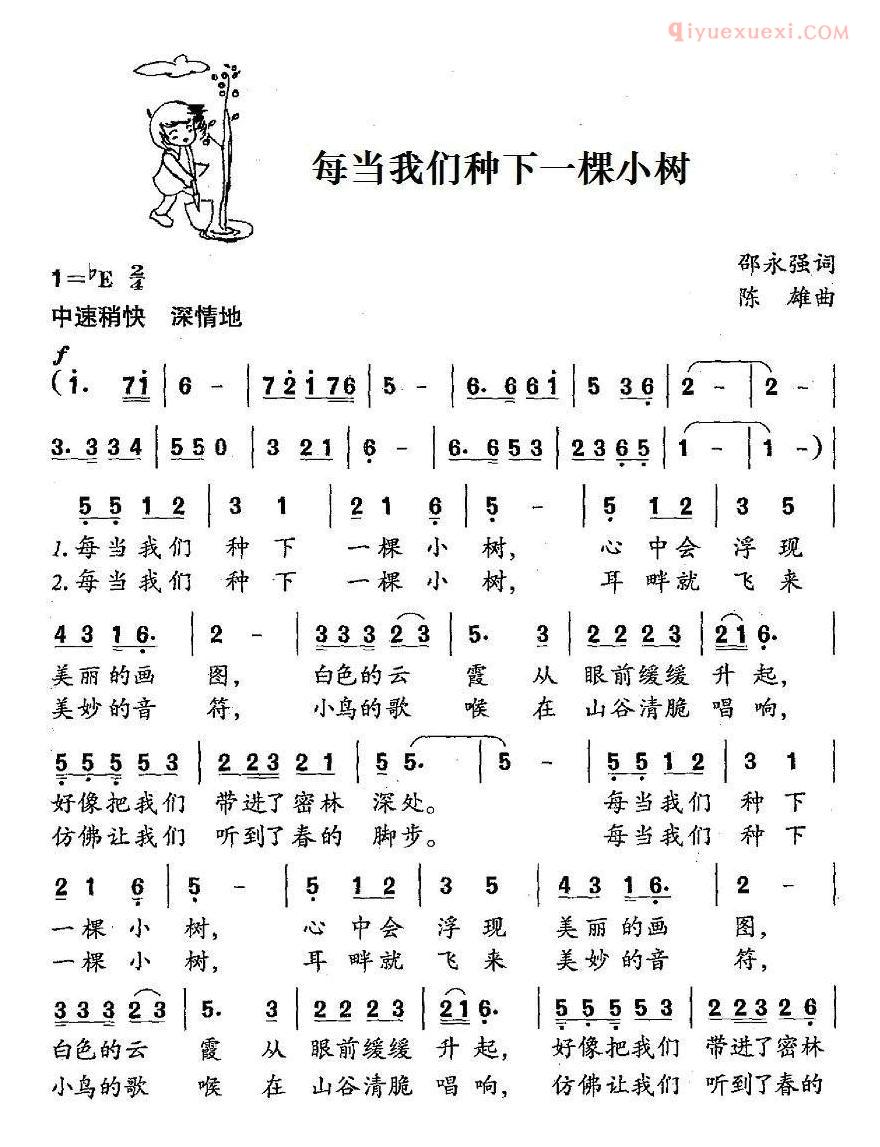 qiyuexuexi.COM
每当我们种下一棵小树
邵永强词
1=♭E 2/4
陈 雄曲
中速稍快 深情地
f
(i. 7i | 6 - | 72i76 | 5 - | 6. 66i | 5 36 | 2 - | 2 - |
3. 334 | 550 | 3 21 | 6 - | 6. 653 | 2365 | 1 - | 1 -)|
5512 | 3 1 | 21 6 | 5 - | 5 12 | 3 5 |
1.每当我们 种 下 一棵 小 树, 心 中会 浮 现
2.每当我们 种 下 一棵 小 树, 耳 畔就 飞 来
43 16. | 2 - | 333 23 | 5. 3 | 2223 | 216. |
美丽的画 图, 白色的云 霞 从 眼前缓缓 升起,
美妙的音 符, 小鸟的歌 喉 在 山谷清脆 唱响,
55553 | 22321 | 5 5. | 5 - | 5512 | 3 1 |
好像把我们 带进了密林 深处。 每当我们 种 下
仿佛让我们 听到了春的 脚步。 每当我们 种 下
21 6 | 5 - | 5 12 | 3 5 | 43 16. | 2 - |
一棵 小 树, 心 中会 浮 现 美丽的画 图,
一棵 小 树, 耳 畔就 飞 来 美妙的音 符,
333 23 | 5. 3 | 2223 | 216. | 55553 | 22326 |
白色的云 霞 从 眼前缓缓 升 起, 好像把我们 带进了密林
小鸟的歌 喉 在 山谷清脆 唱 响, 仿佛让我们 听到了春的